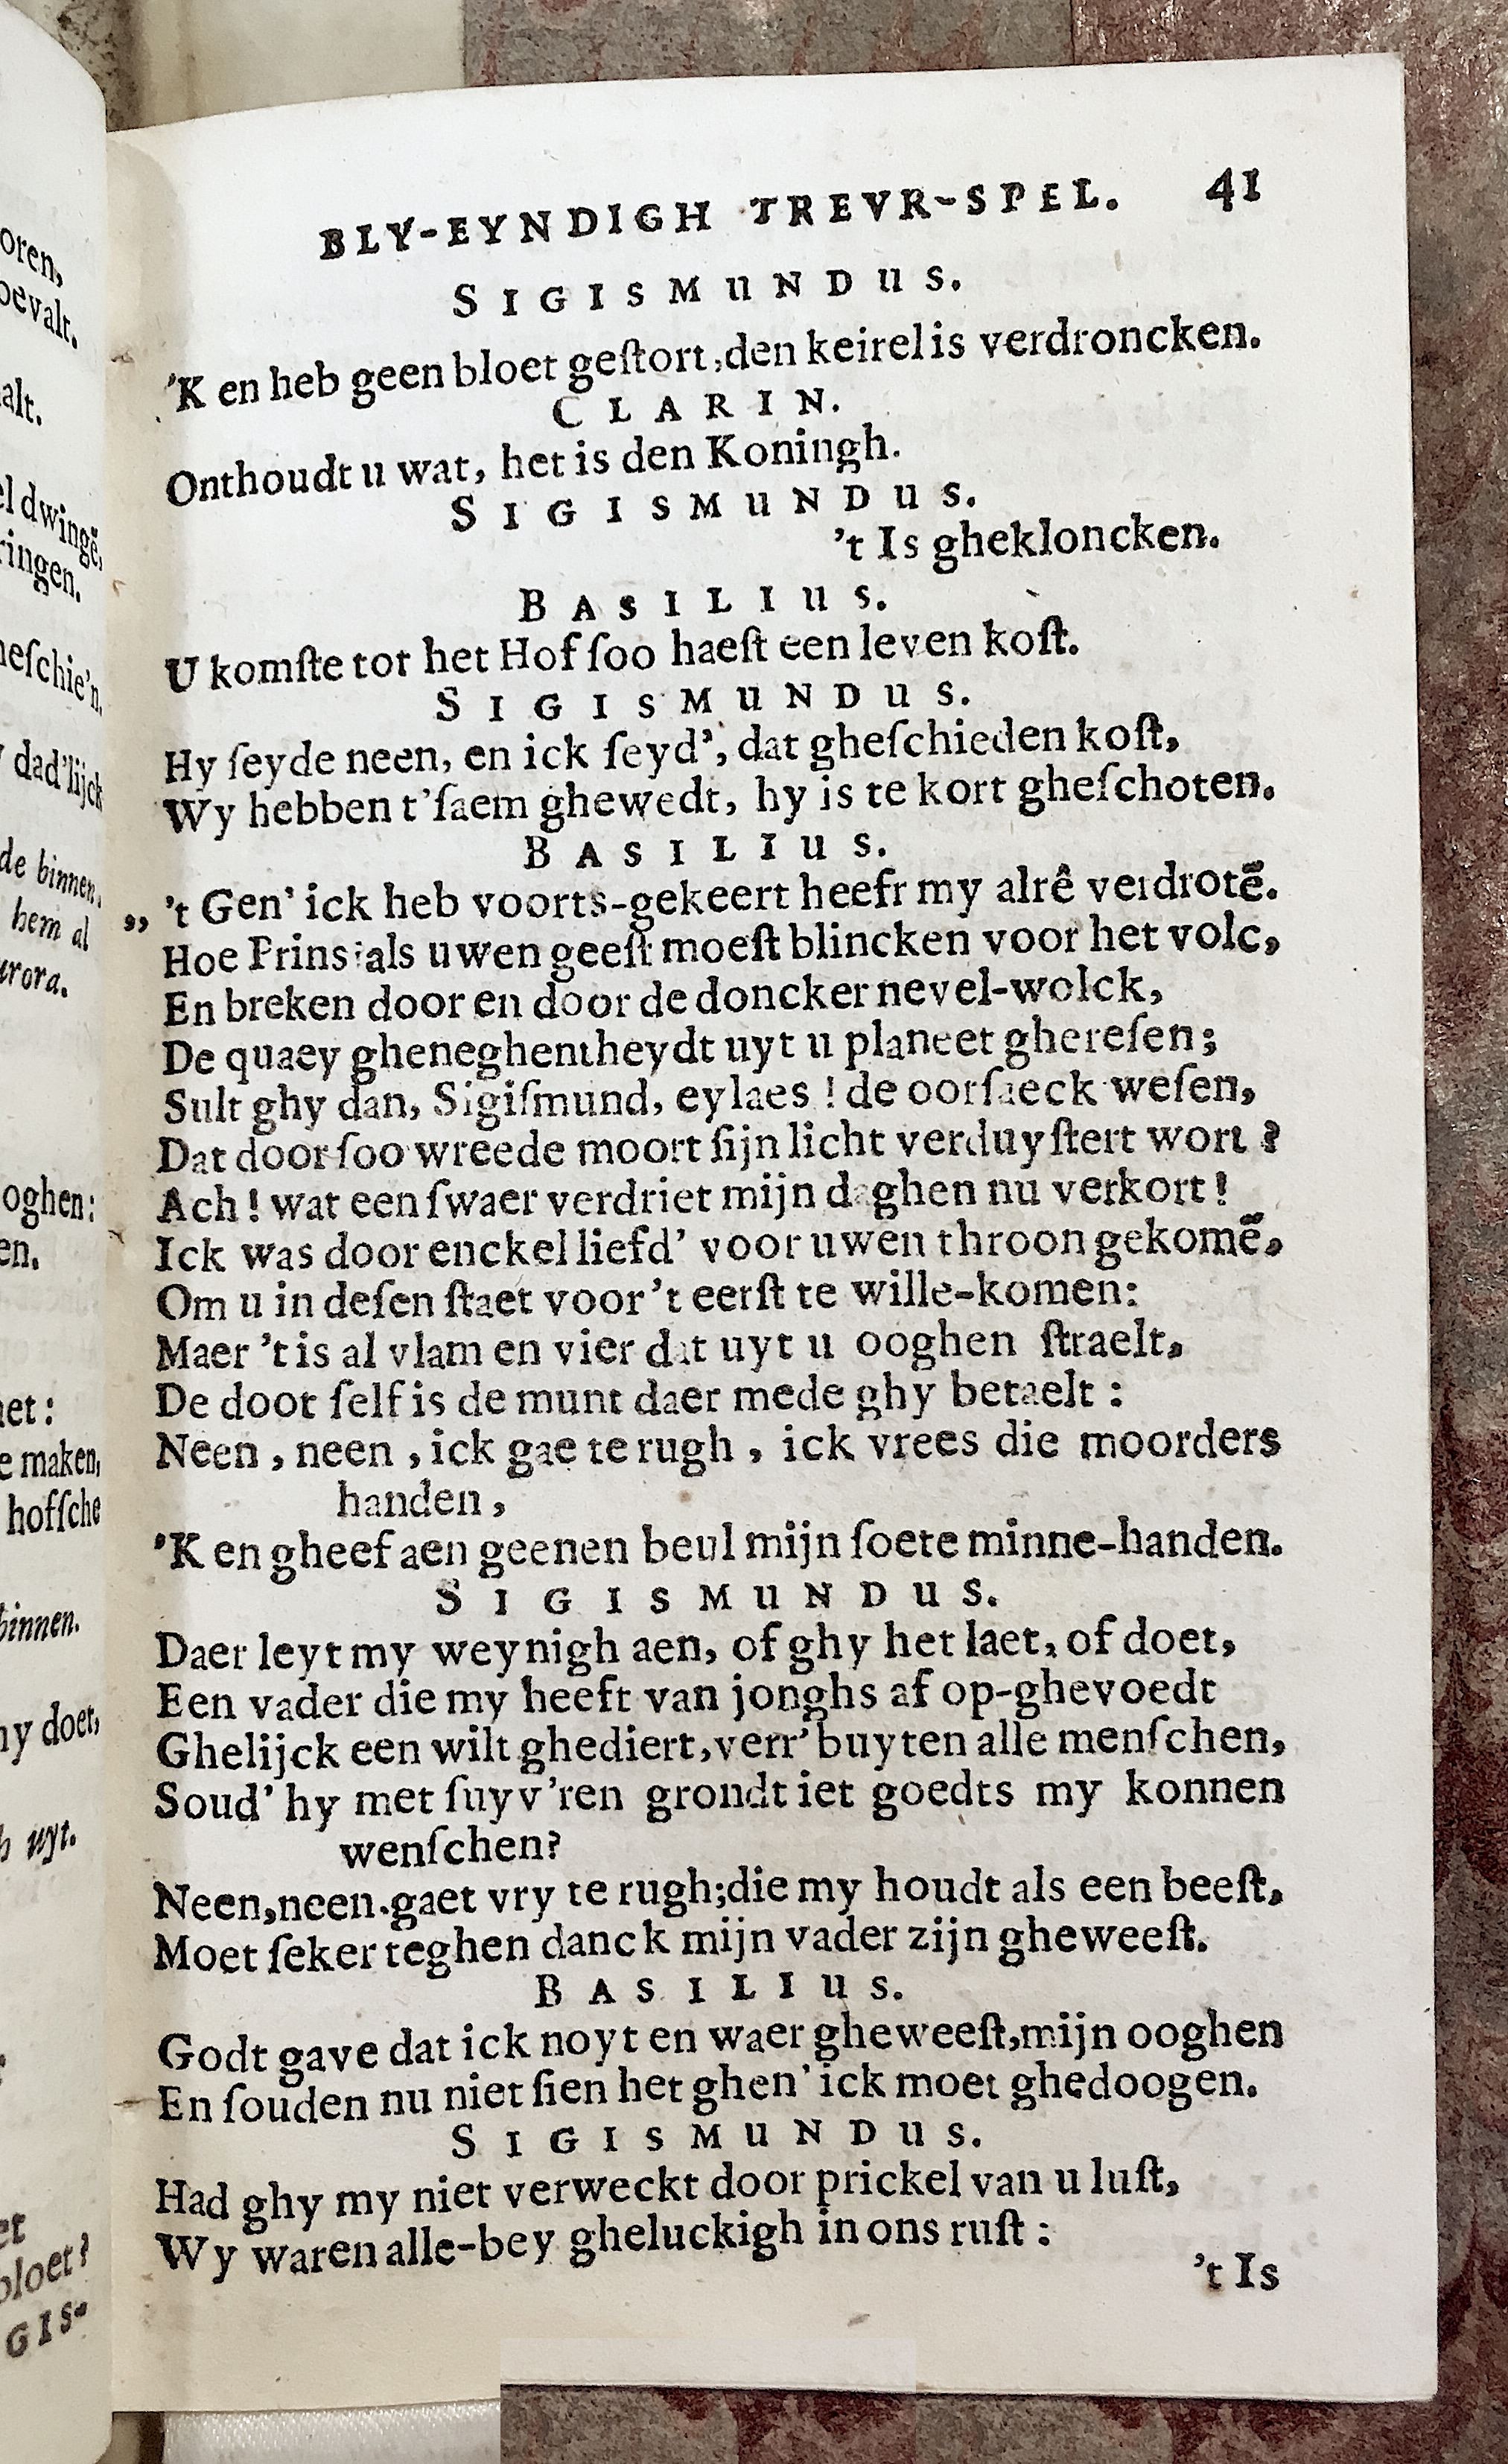 oren,
oevalt.
alt.
el dwingẽ,
ringen.
heſchie'n.
dad'lijck
de binnen.
hem al
urora.
oghen:
en.
et:
e maken,
hofſche
binnen.
y doet,
uyt.
et
bloet?
GIS-
BLY-EYNDIGH TREVR-SPEL. 41
SIGISMUNDUS.
'K en heb geen bloet geſtort, den keirel is verdroncken.
CLARIN.
Onthoudt u wat, het is den Koningh.
SIGISMUNDUS.
't Is ghekloncken.
BASILIUS.
U komſte tot het Hof ſoo haeſt een leven koſt.
SIGISMUNDUS.
Hy ſeyde neen, en ick ſeyd', dat gheſchieden koſt,
Wy hebben t'ſaem ghewedt, hy is te kort gheſchoten.
BASILIUS.
„ 't Gen' ick heb voorts-gekeert heeft my alrê verdrotẽ.
Hoe Prins! als uwen geeſt moeſt blincken voor het volc,
En breken door en door de doncker nevel-wolck,
De quaey gheneghentheydt uyt u planeet ghereſen;
Sult ghy dan, Sigiſmund, eylaes! de oorſaeck weſen,
Dat door ſoo wreede moort ſijn licht verduyſtert wort?
Ach! wat een ſwaer verdriet mijn daghen nu verkort!
Ick was door enckel liefd' voor uwen throon gekomẽ,
Om u in deſen ſtaet voor 't eerſt te wille-komen:
Maer 't is al vlam en vier dat uyt u ooghen ſtraelt,
De doot ſelf is de munt daer mede ghy betaelt:
Neen, neen, ick gae te rugh, ick vrees die moorders
handen,
'K en gheef aen geenen beul mijn ſoete minne-handen.
SIGISMUNDUS.
Daer leyt my weynigh aen, of ghy het laet, of doet,
Een vader die my heeft van jonghs af op-ghevoedt
Ghelijck een wilt ghediert, verr' buyten alle menſchen,
Soud' hy met ſuyv'ren grondt iet goedts my konnen
wenſchen?
Neen, neen. gaet vry te rugh; die my houdt als een beeſt,
Moet ſeker teghen danck mijn vader zijn gheweeſt.
BASILIUS.
Godt gave dat ick noyt en waer gheweeſt, mijn ooghen
En ſouden nu niet ſien het ghen' ick moet ghedoogen.
SIGISMUNDUS.
Had ghy my niet verweckt door prickel van u luſt,
Wy waren alle-bey gheluckigh in ons ruſt:
't Is